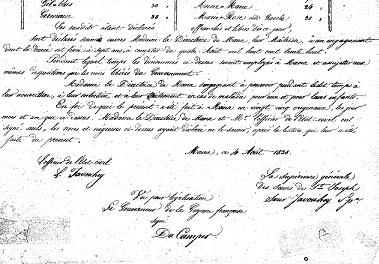 Anne Marie 24 "
Germain 35 "
Marie Rose des Roseles 31 "
affranchis et libres dits par,
Les susdits étant déclarés
sont déclarés envers Madame la Directrice de Mana, leur Maîtresse, à un engagement
dont la durée est fixée à sept ans, à compter du quatre Août mil huit cent trente huit.
Pendant lequel temps les dénommés ci-dessus seront employés à Mana et assujettis aux
mêmes dispositions que les noirs libérés du Gouvernement.
Madame la Directrice de Mana s'engageant à pourvoir pendant ledit temps à
leur nourriture, à leur entretien et à leur traitement en cas de maladie, pour eux et pour leurs enfants
En foi de quoi le présent a été fait à Mana en vingt cinq originaux, les jour
mois et an que ci-dessus. Madame la Directrice de Mana et Mr. l'officier de l'Etat-civil ont
signé seuls, les noirs et négresses ci-dessus ayant déclaré ne le savoir, après la lecture qui leur a été
faite du présent.
Mana, ce 4 Août 1838.
l'officier de l'Etat civil
La supérieure générale
des sœurs de St. Joseph
Sœur Javouhey
Vu pour légalisation
Le Gouverneur de la Guyane française
signé
Du Campe